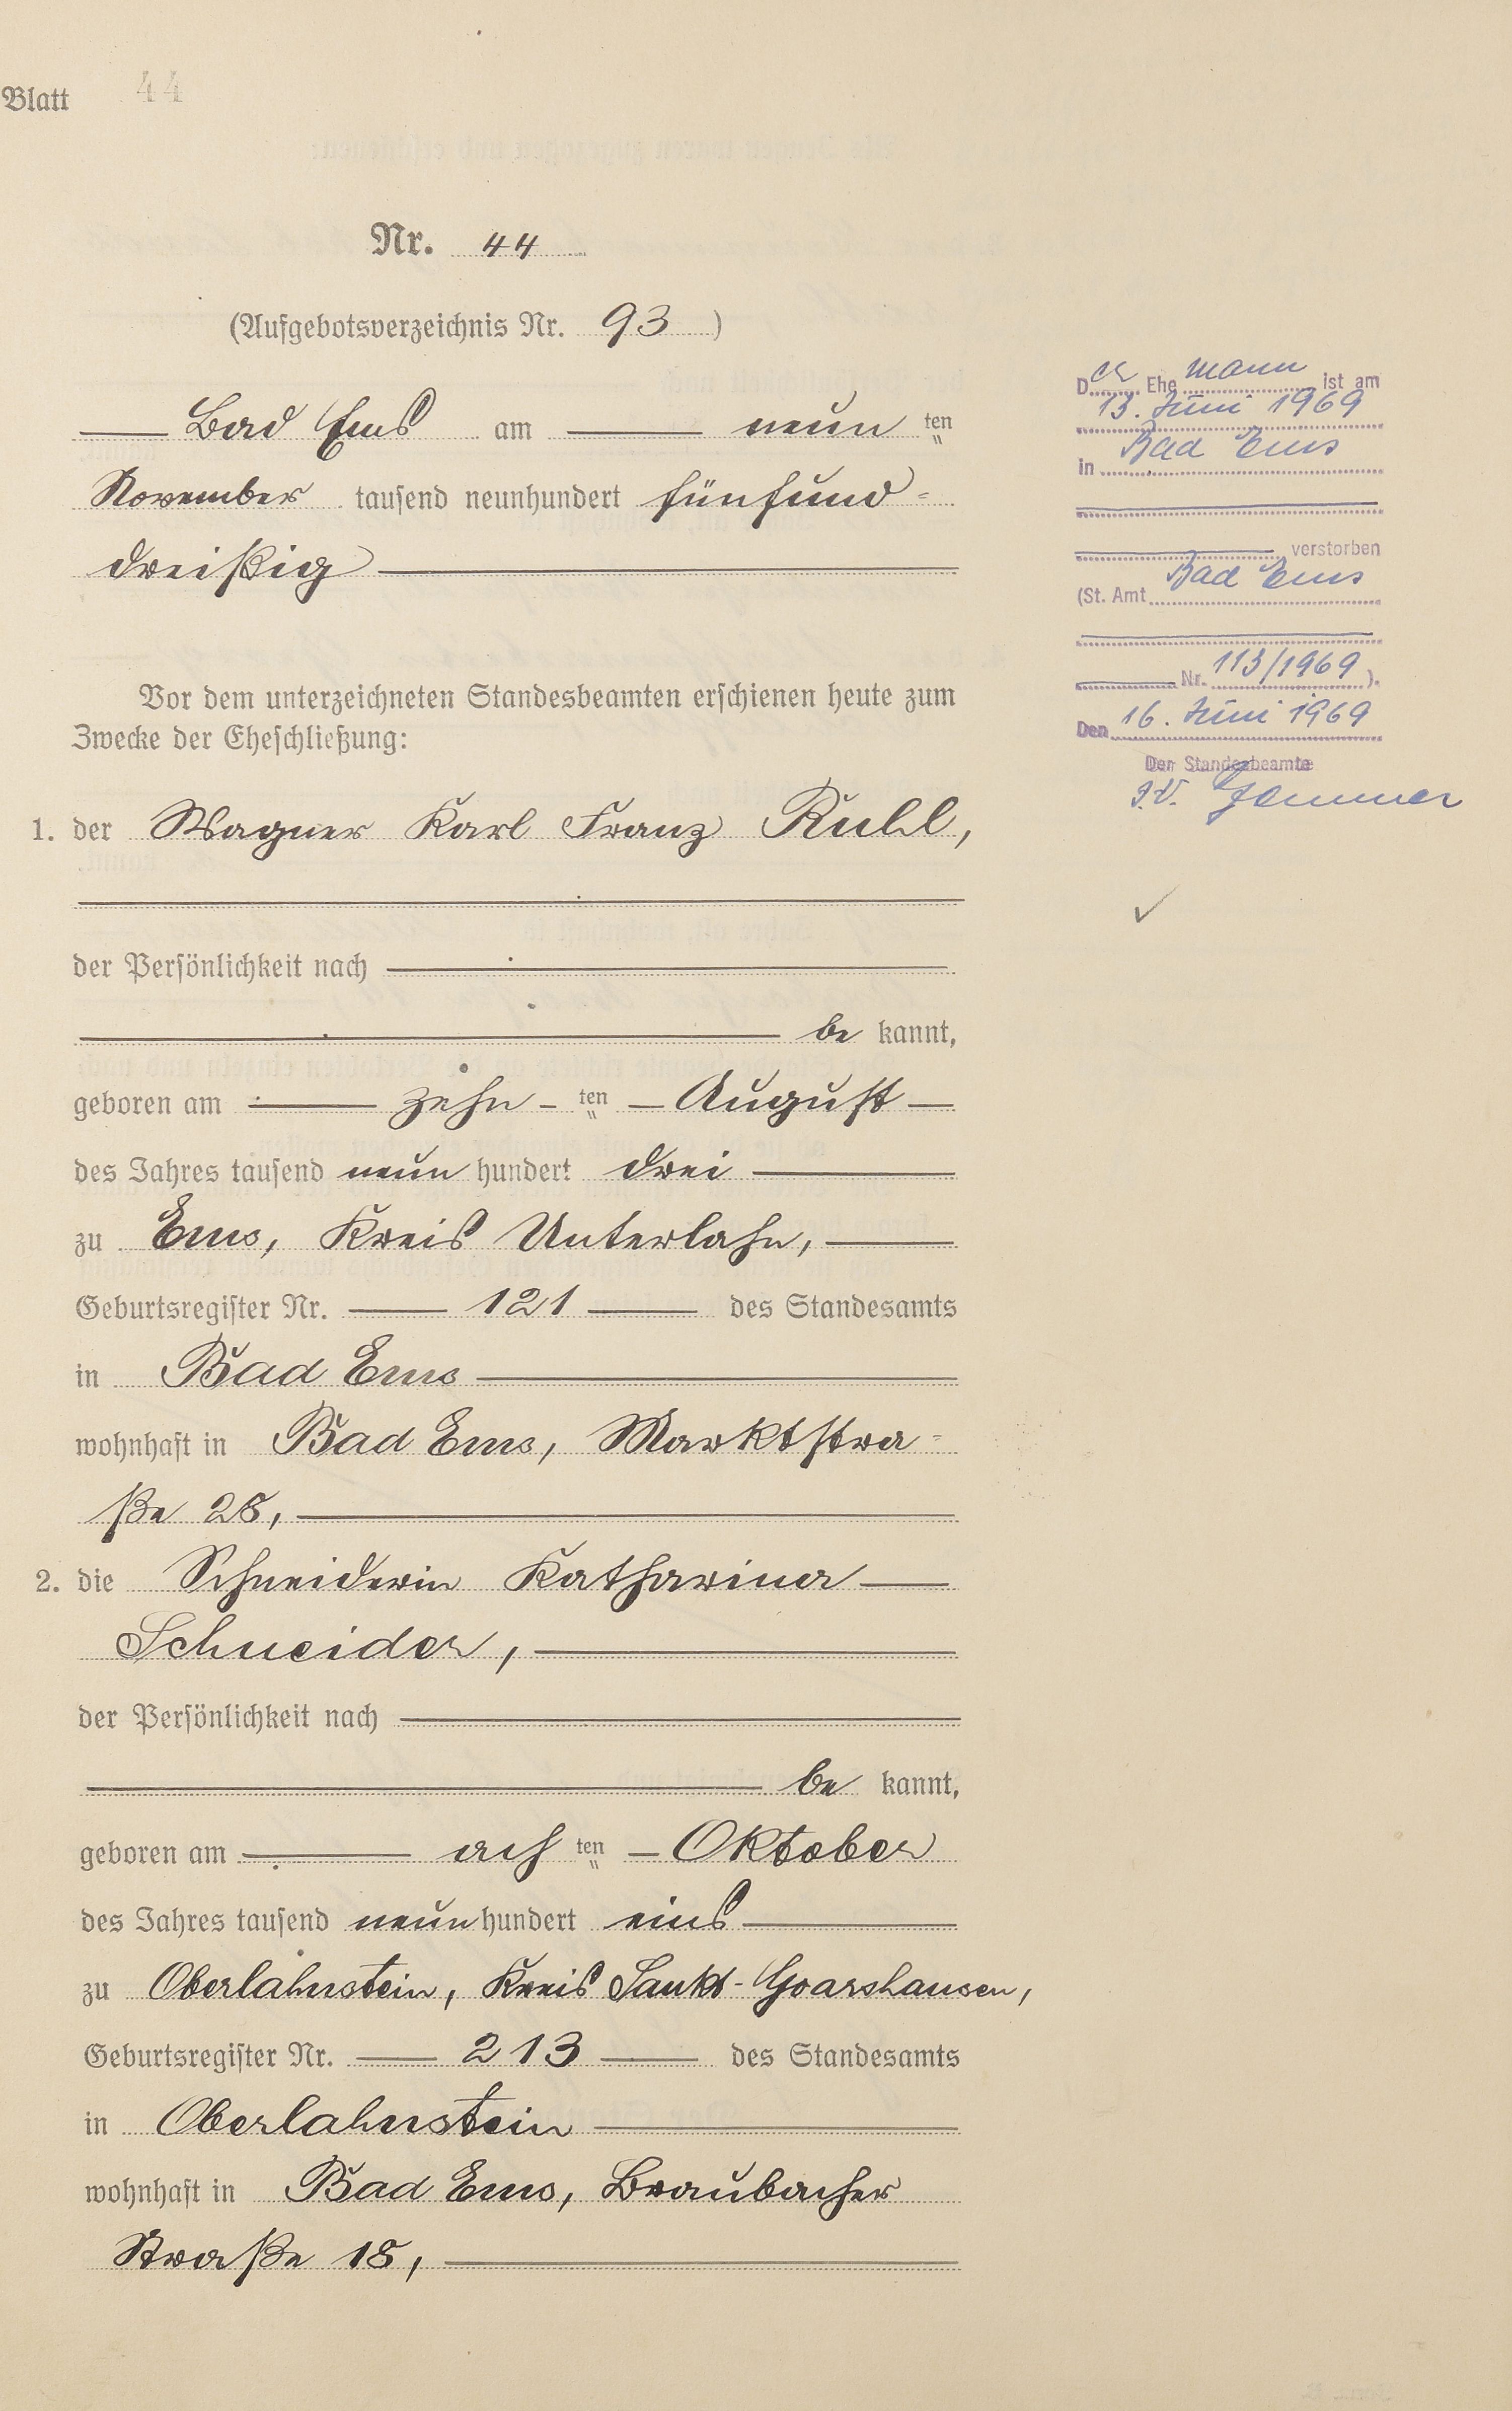 Blatt 44
Nr. 44
(Aufgebotsverzeichnis Nr. 93)
Bad Ems am neun ten
November tausend neunhundert fünfund=
dreißig
Vor dem unterzeichneten Standesbeamten erschienen heute zum
Zwecke der Eheschließung:
1. der Wagner Karl Franz Ruhl,
der Persönlichkeit nach
be kannt,
geboren am zehn ten August
des Jahres tausend neun hundert drei
zu Ems, Kreis Unterlahn,
Geburtsregister Nr. 121 des Standesamts
in Bad Ems
wohnhaft in Bad Ems, Marktstra=
ße 28,
2. die Schneiderin Katharina
Schneider,
der Persönlichkeit nach
be kannt,
geboren am ach ten Oktober
des Jahres tausend neun hundert eins
zu Oberlahnstein, Kreis Sankt-Goarshausen,
Geburtsregister Nr. 213 des Standesamts
in Oberlahnstein
wohnhaft in Bad Ems, Braubacher
Straße 18,
Der Ehemann ist am
13. Juni 1969
in Bad Ems
verstorben
(St. Amt Bad Ems
Nr. 113/1969).
Den 16. Juni 1969
Der Standesbeamte
I.V.